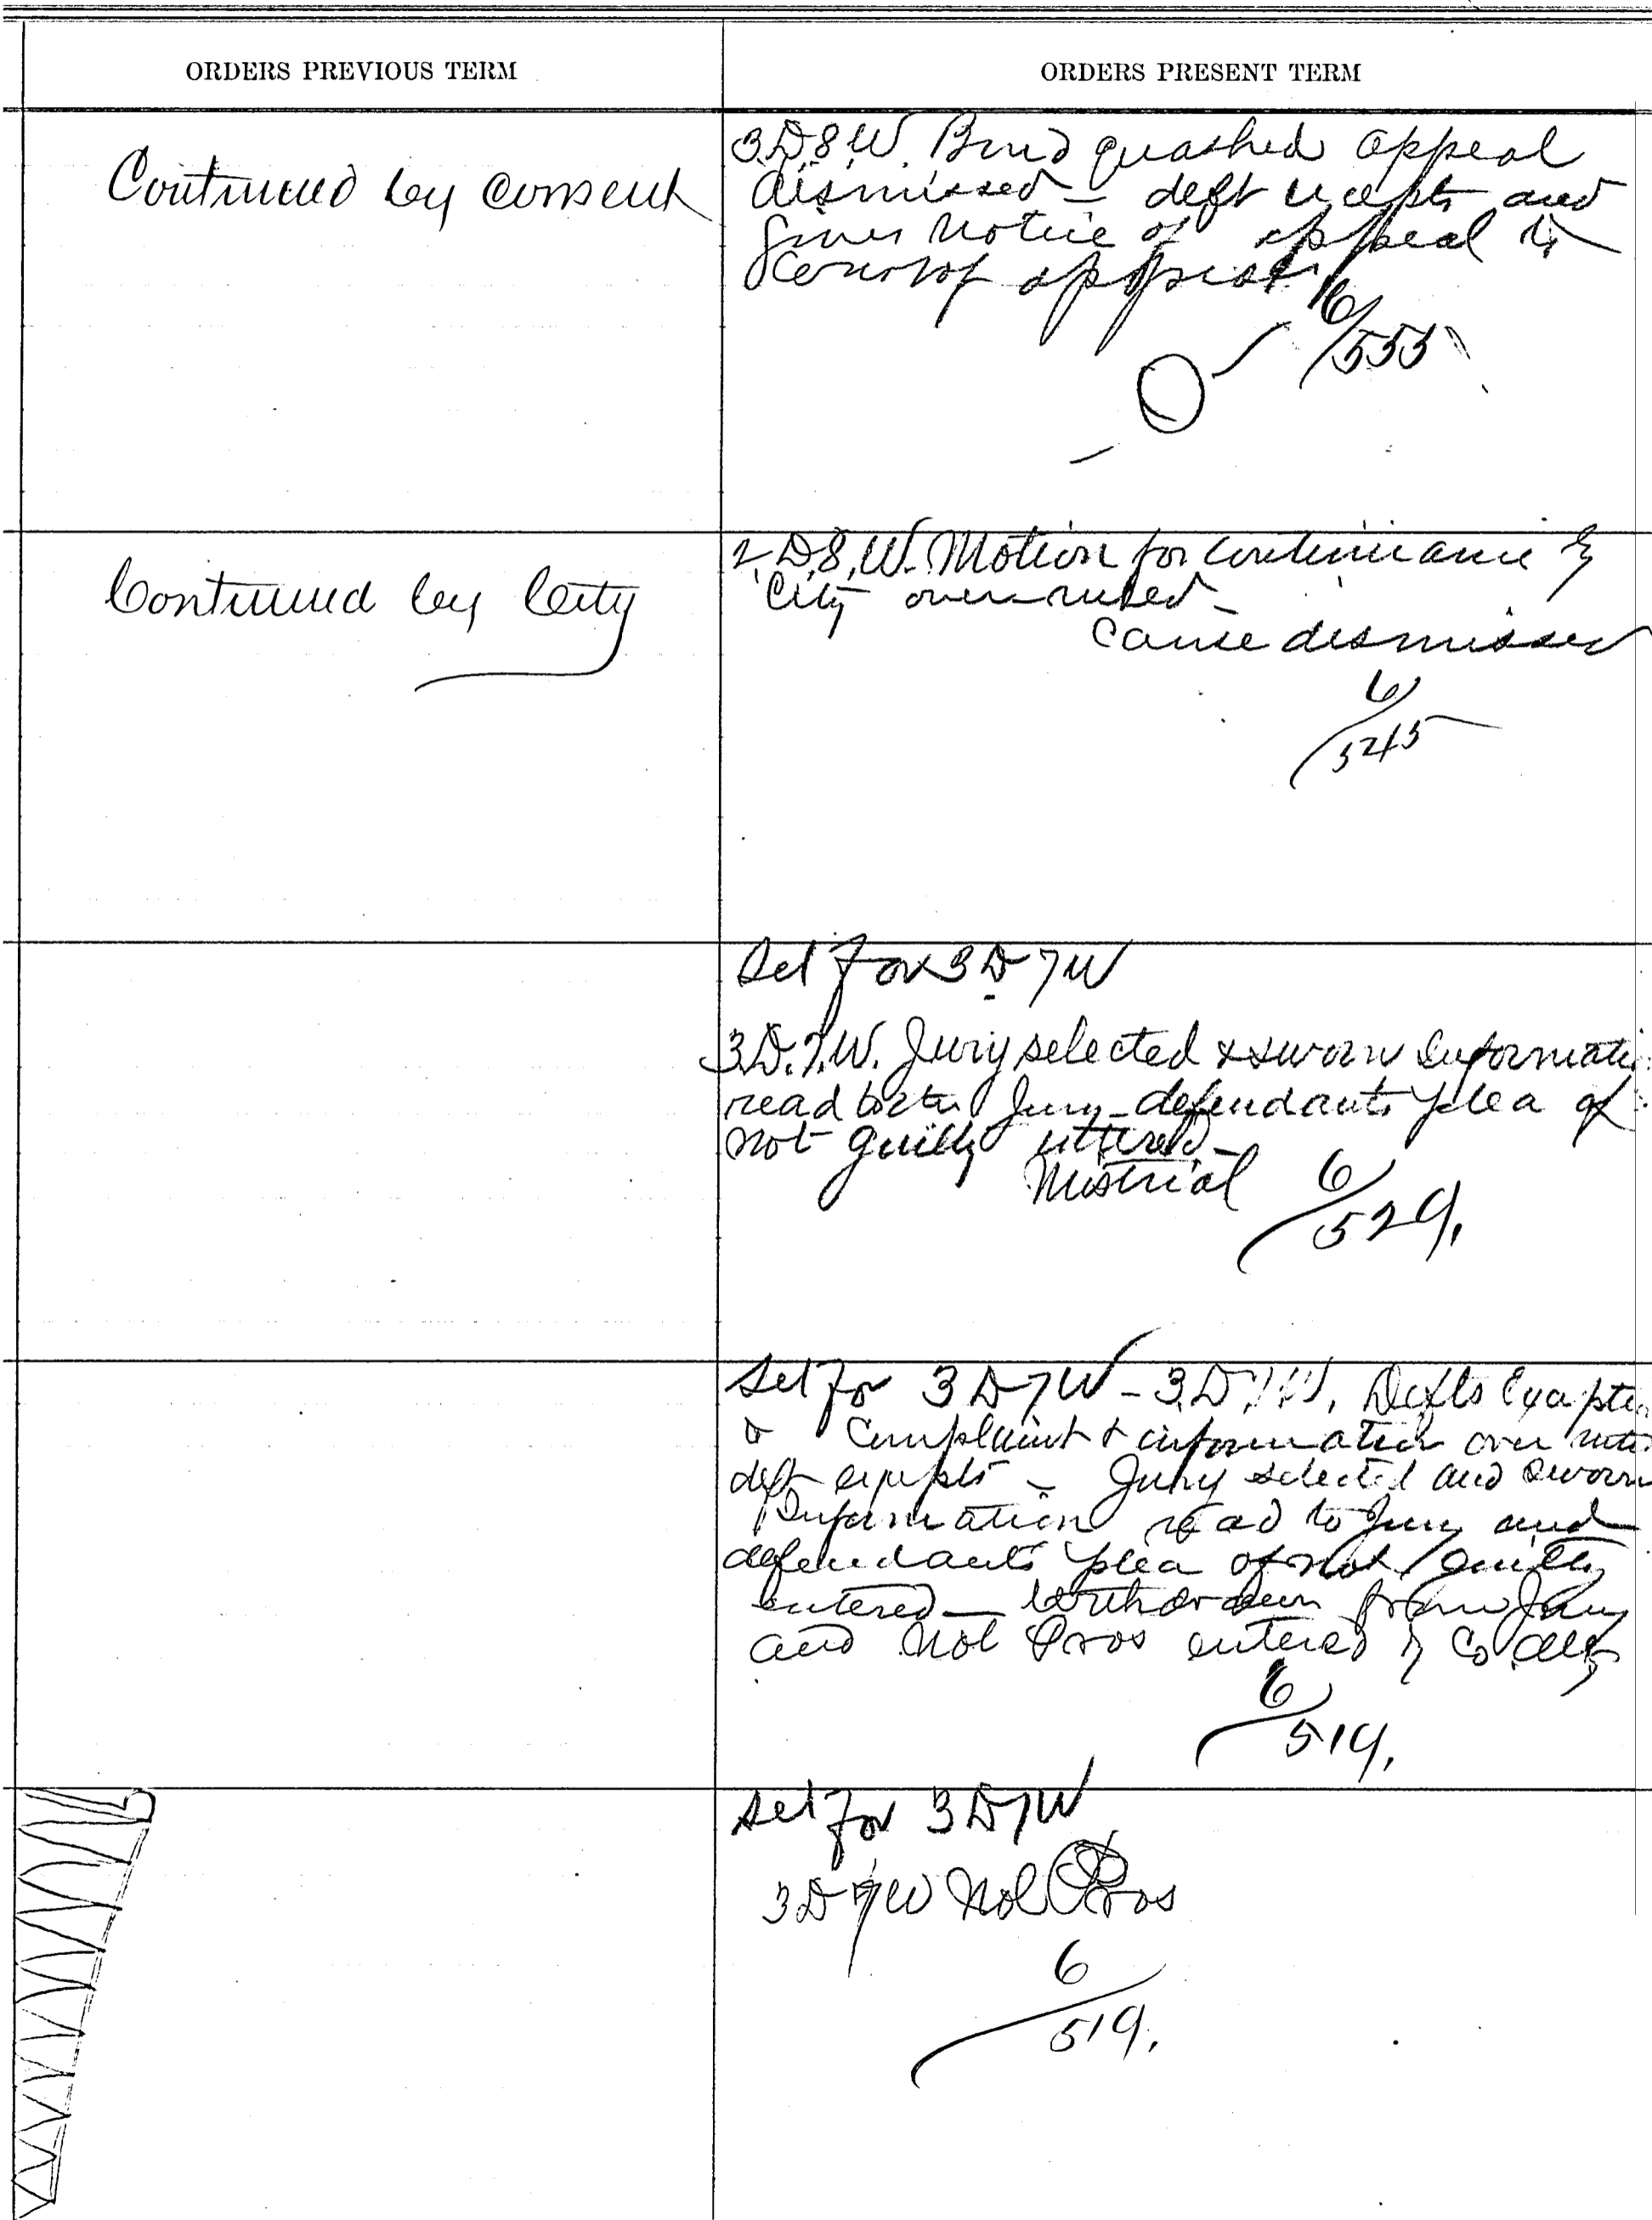 ORDERS PREVIOUS TERM
ORDERS PRESENT TERM
Continued by consent
3.D.8.W. Bond quashed appeal
dismissed — deft excepts and
gives notice of appeal to
Court of appeals
6/555
Continued by City
2.D.8.W. Motion for continuance by
City over-ruled —
Cause dismissed
6/545
Set for 3 D 7 W
3.D.7.W. Jury selected & sworn Informati
read to the Jury — defendants plea of
not guilty entered —
Mistrial
6/529.
Set for 3 D 7 W — 3.D.7.W. Defts Excepti
to Complaint & information over rule
deft excepts — Jury selected and sworn
Information read to Jury and
defendants plea of not guilty
entered — Withdrawn from Jury
and Nol Pros entered by Co atty
6/519.
Set for 3 D 7 W
3 D 7 W Nol Pros
6/519.